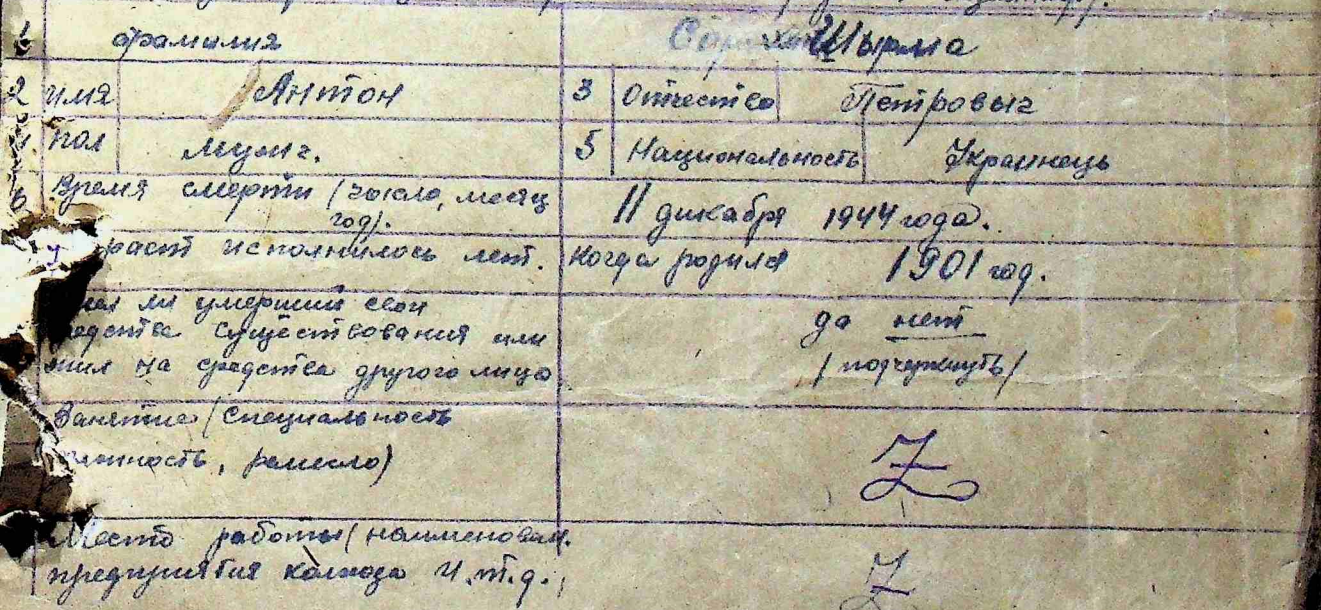 1 фамилия Шырма
2 имя Антон 3 Отчество Петровыч
4 пол мужч. 5 Национальность Украинець
6 Время смерти (число, месяц
год). 11 дикабря 1944 года.
7 раст исполнилось лет. Когда родился 1901 год.
ли умерший свои
редства существования или да нет
жил на средства другого лицо / подчеркнуть /
Занятие (специальность
лжность, ремесло) Z
Место работы (наименован.
предприятия колхоза и.т.д. Z